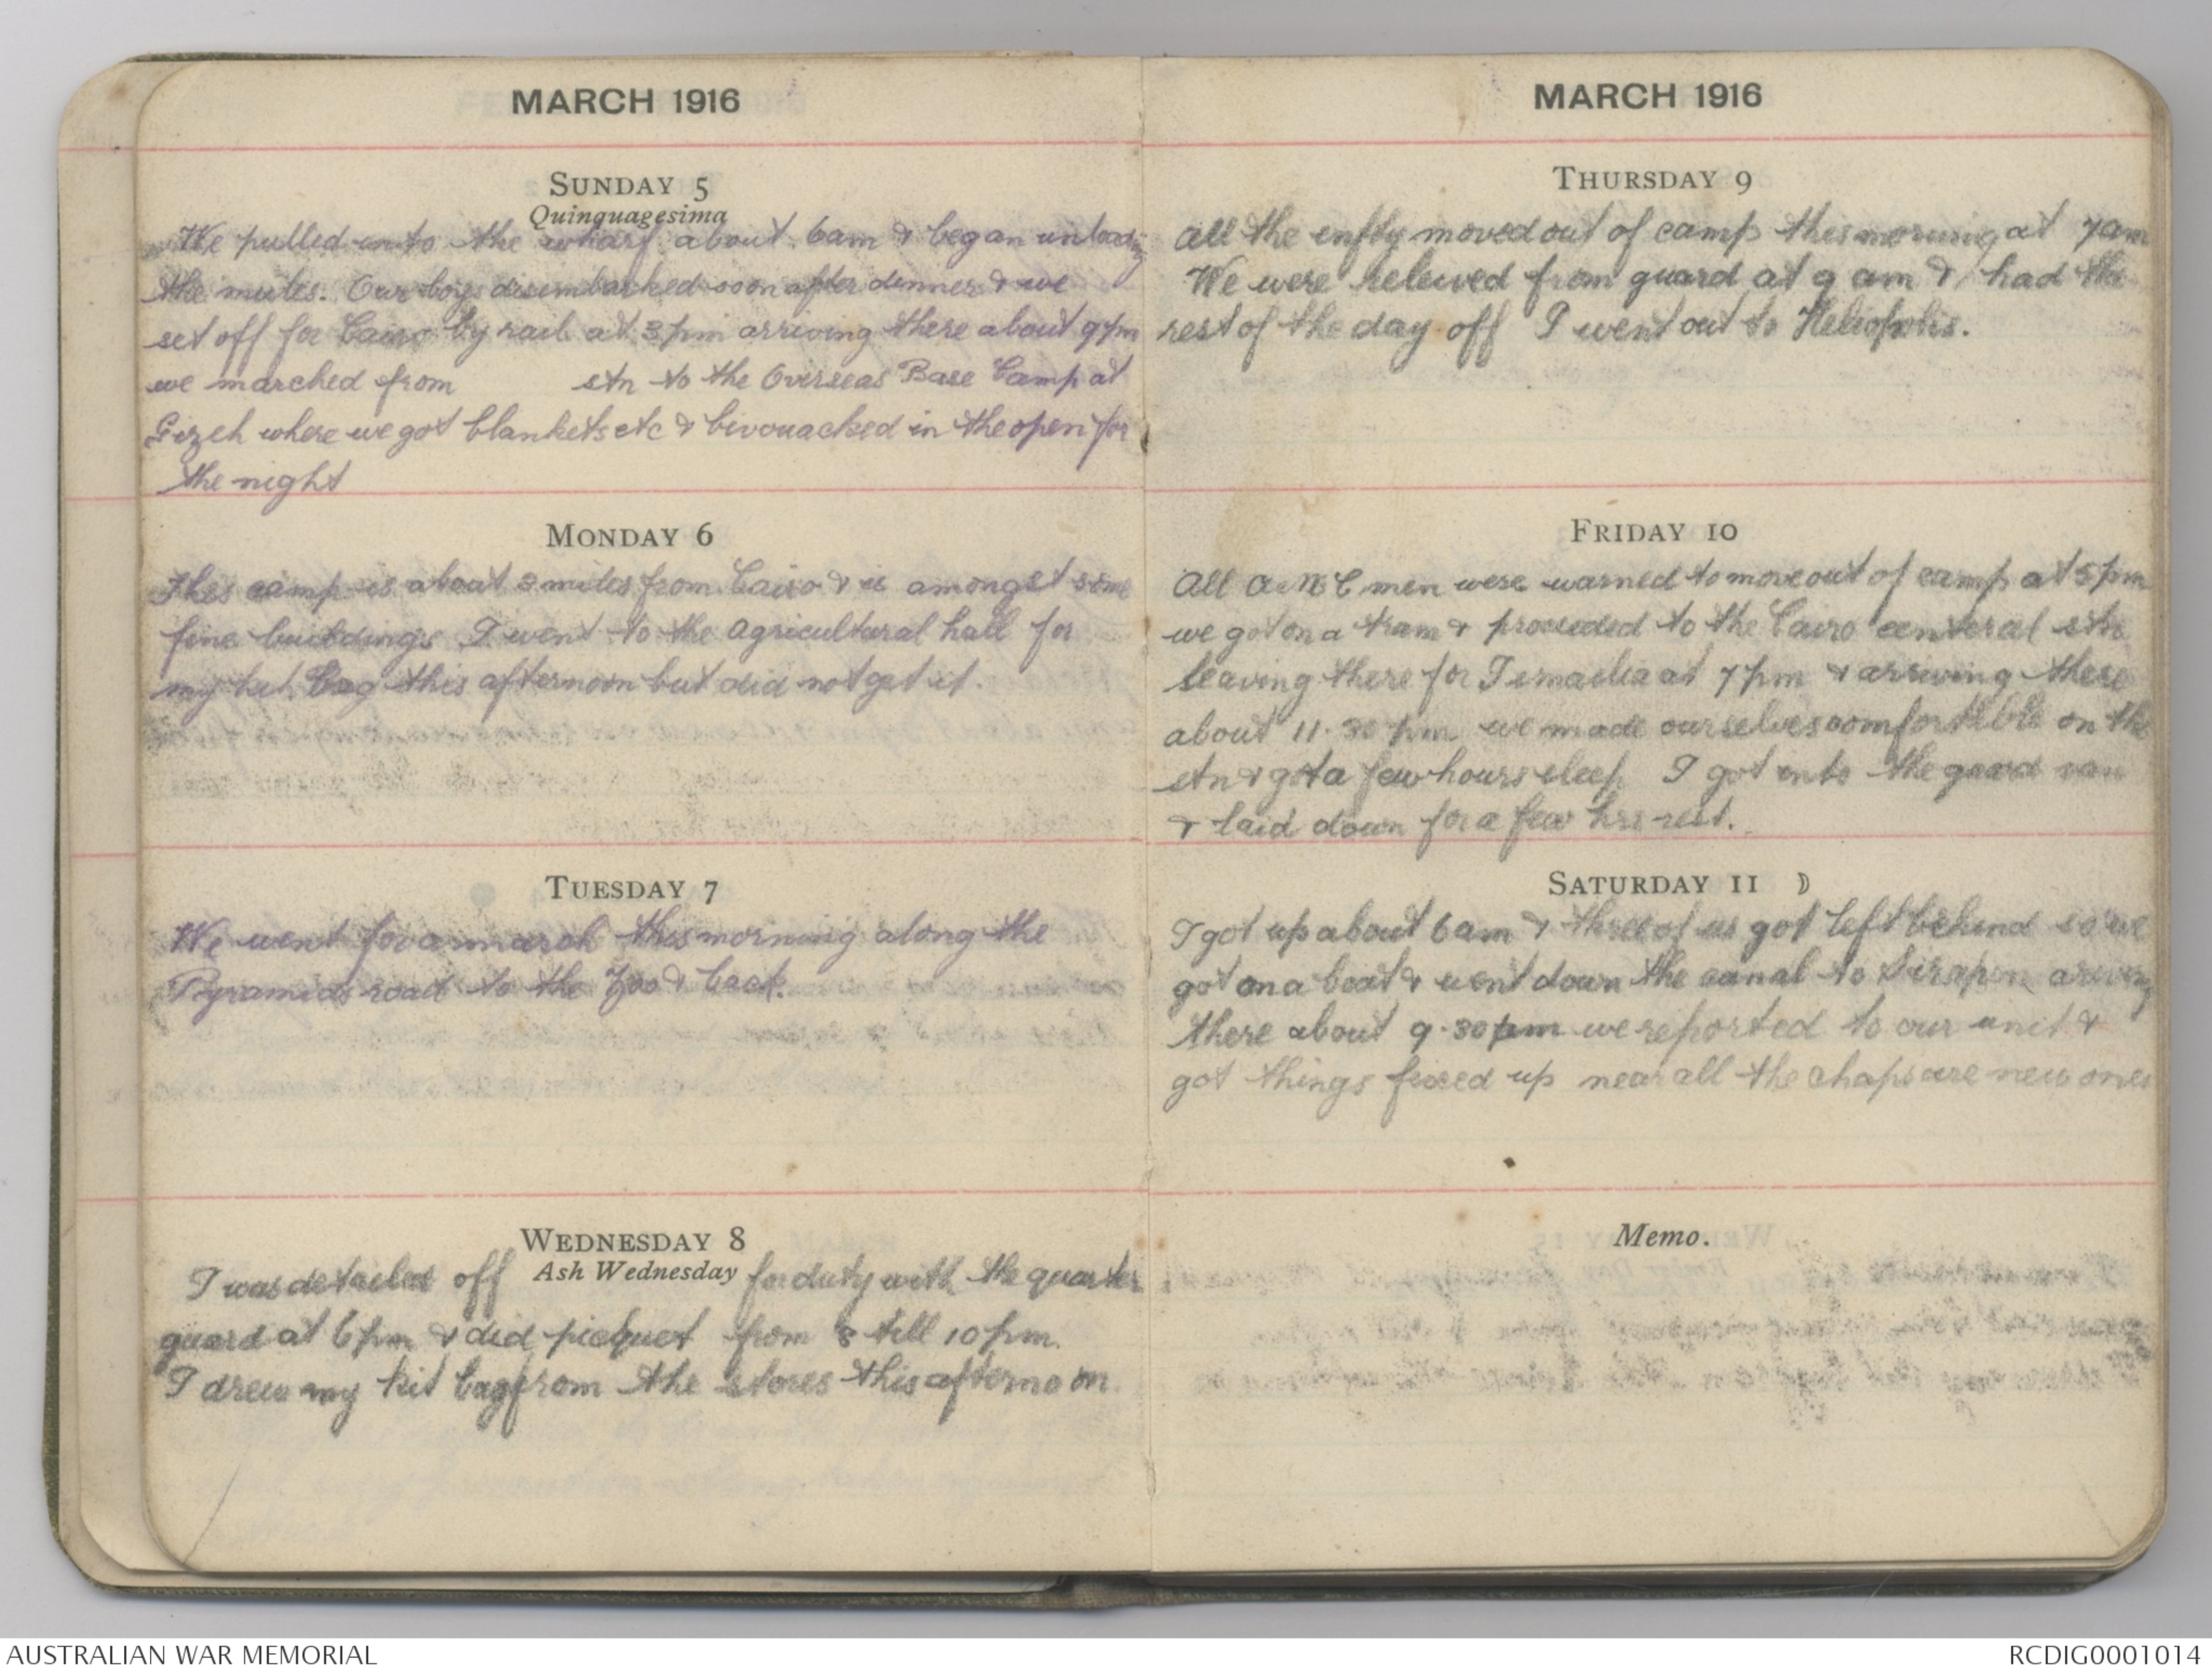 MARCH 1916
SUNDAY 5
Quinquagesima
We pulled into the wharf about 6am & began unloading
the mules. Our boys disembarked soon after dinner & we
set off for Cairo by rail at 3pm arriving there about 9pm
we marched from stn to the Overseas Base Camp at
Gizeh where we got blankets etc & bivouacked in the open for
the night
MONDAY 6
This camp is about 2 miles from Cairo & is amongst some
fine buildings I went to the Agricultural hall for
my kit bag this afternoon but did not get it.
TUESDAY 7
We went for a march this morning along the
Pyramids road to the Zoo & back.
WEDNESDAY 8
Ash Wednesday
I was detailed off for duty with the quarter
guard at 6pm & did picquet from 8 till 10 pm.
I drew my kit bag from the stores this afternoon
MARCH 1916
THURSDAY 9
All the enfty moved out of camp this morning at 7am
We were releived from guard at 9 am & had the
rest of the day off I went out to Heliopolis.
FRIDAY 10
All A.M.C men were warned to move out of camp at 5pm
we got on a tram & proceeded to the Cairo centeral stn
leaving there for Ismailia at 7pm & arriving there
about 11.30 pm we made ourselves comfortible on the
stn & got a few hours sleep I got into the guard van
& laid down for a few hrs rest.
SATURDAY 11 ☽
I got up about 6am & three of us got left behind so we
got on a boat & went down the canal to Sirapon ariving
there about 9.30pm we reported to our unit &
got things fixed up near all the chaps are new ones
Memo.
AUSTRALIAN WAR MEMORIAL
RCDIG0001014